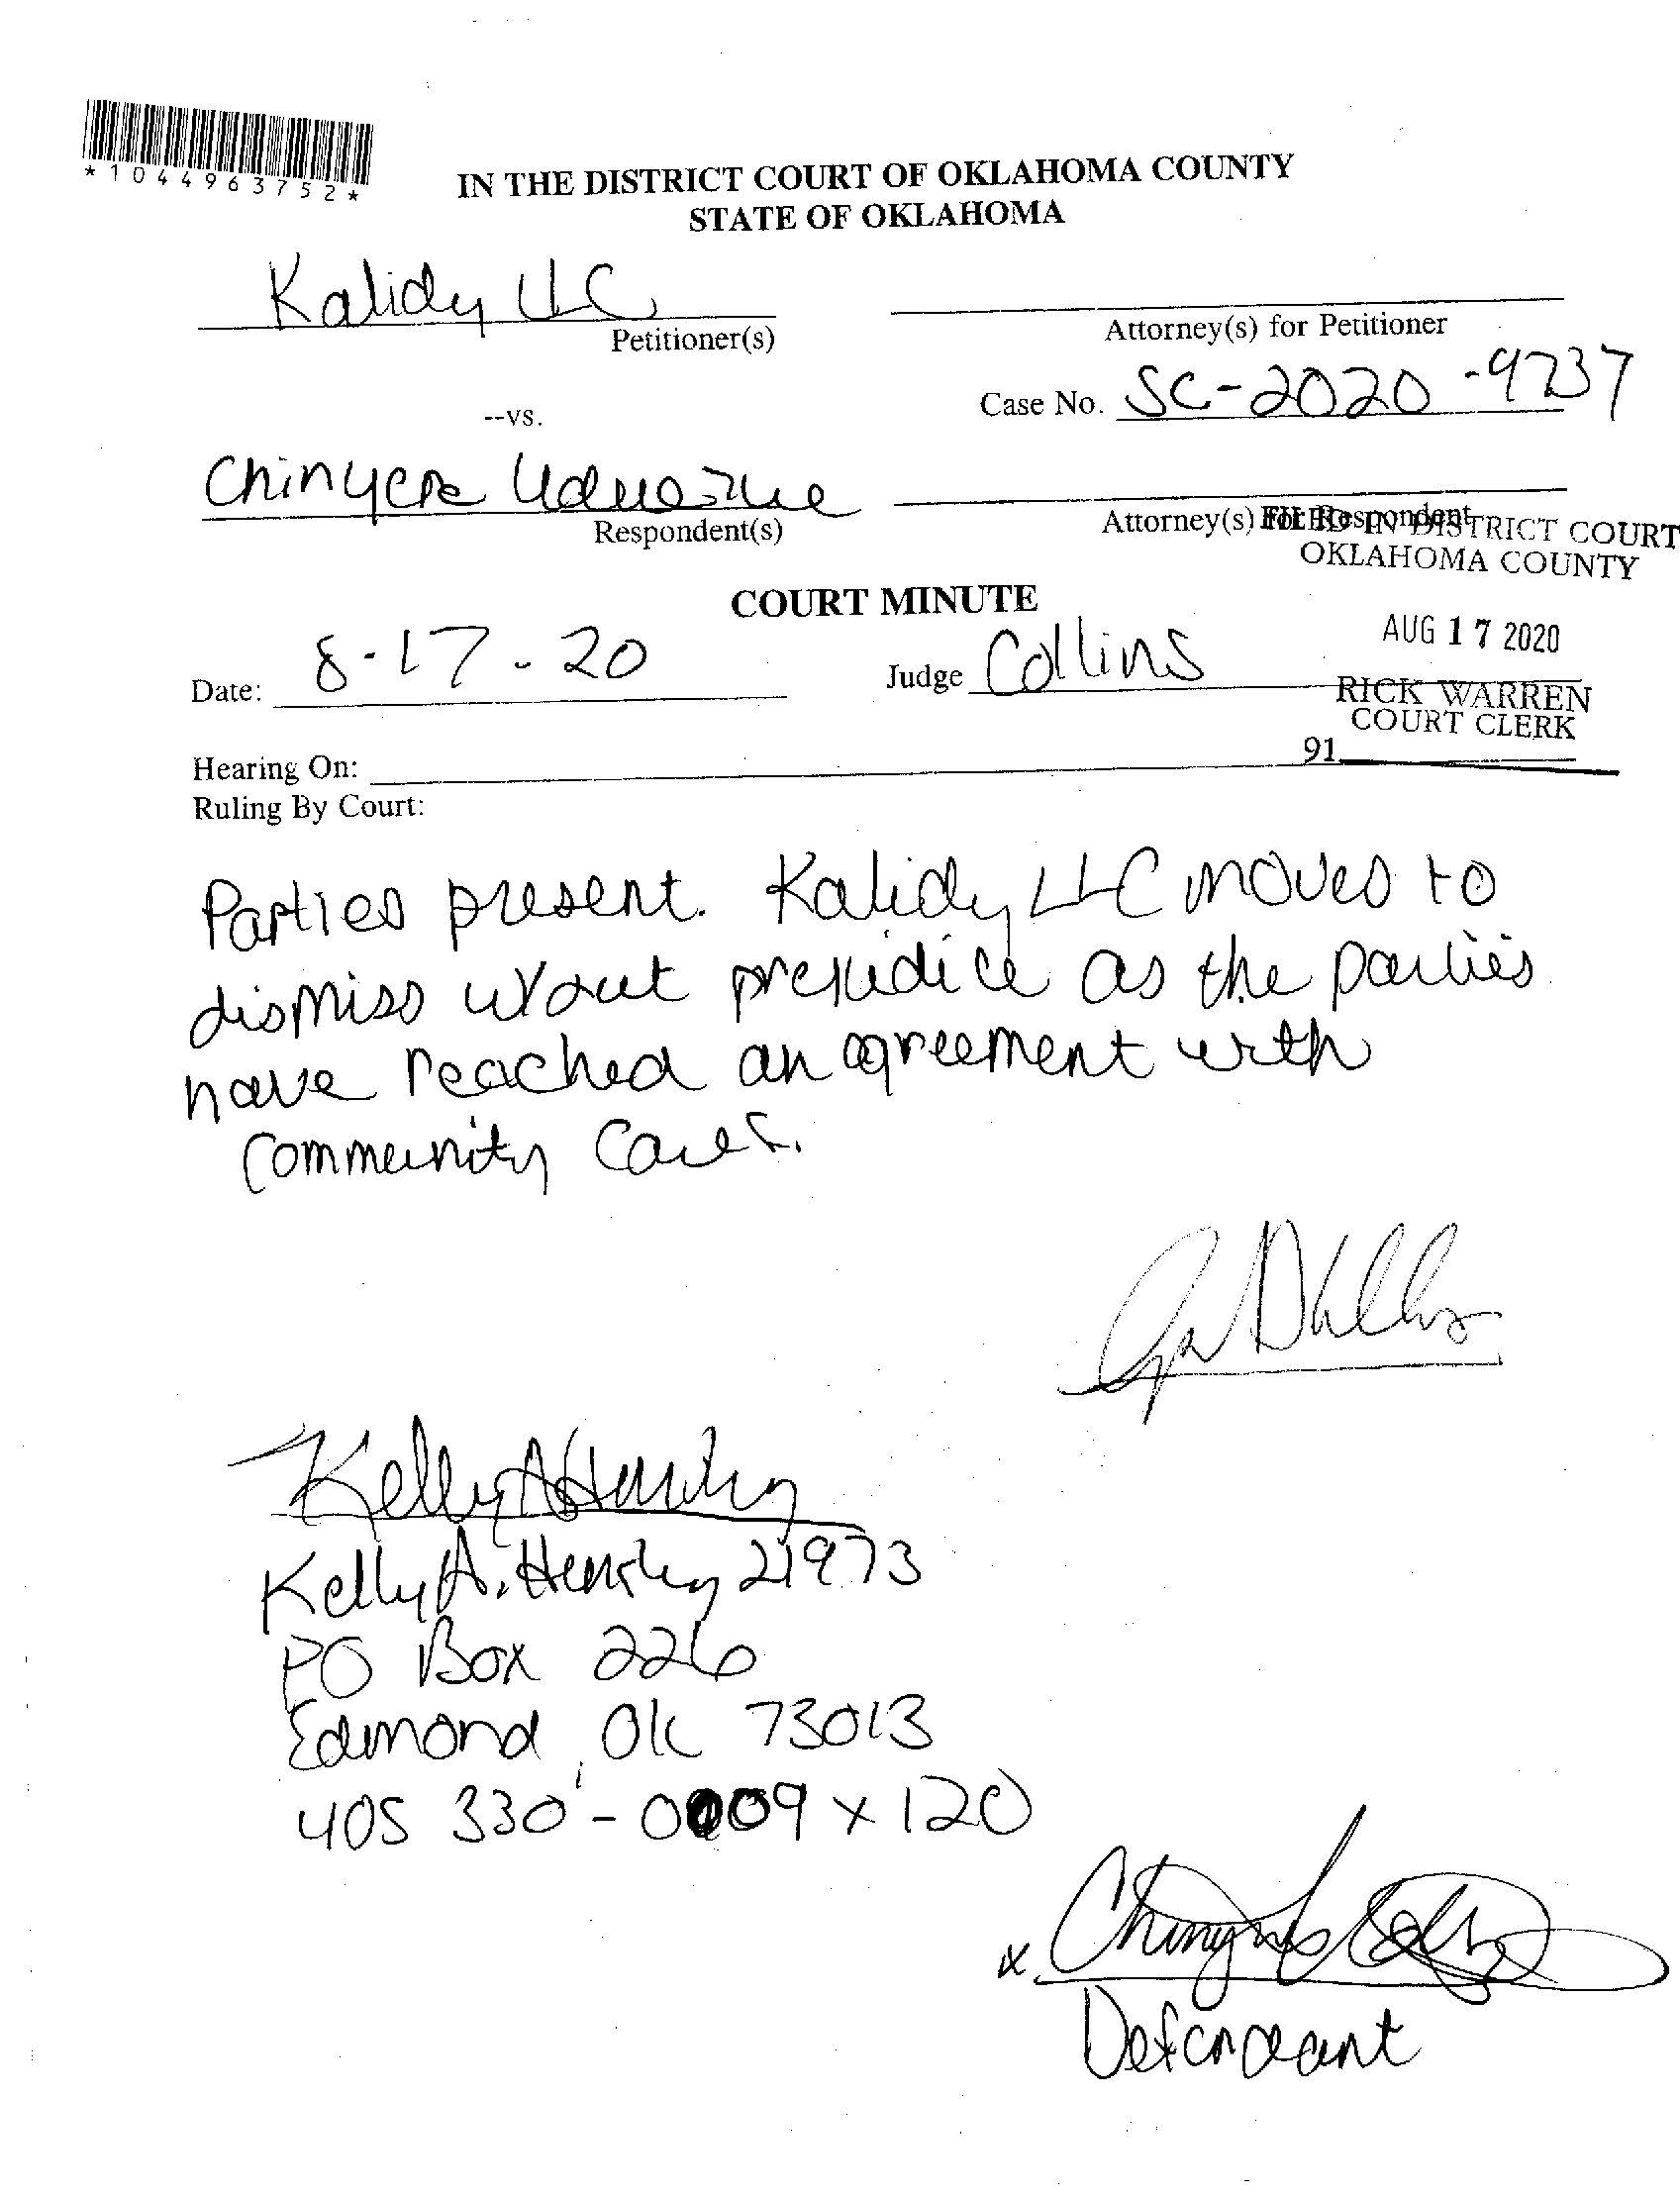 *1044963752*
IN THE DISTRICT COURT OF OKLAHOMA COUNTY
STATE OF OKLAHOMA
Kalidy LLC
Petitioner(s)
Attorney(s) for Petitioner
Case No. SC-2020-9737
--vs.
Chinyere
Respondent(s)
Attorney(s) for Respondent
FILED IN DISTRICT COURT
OKLAHOMA COUNTY
COURT MINUTE
AUG 17 2020
Date: 8-17-20
Judge Collins
RICK WARREN
COURT CLERK
91
Hearing On:
Ruling By Court:
Parties present. Kalidy LLC moves to
dismiss w/out prejudice as the parties
have reached an agreement with
Community Cares.
Kelly A.
Kelly A. 21973
PO Box 226
Edmond, OK 73013
405 330-0009 x 120
x
Defendant